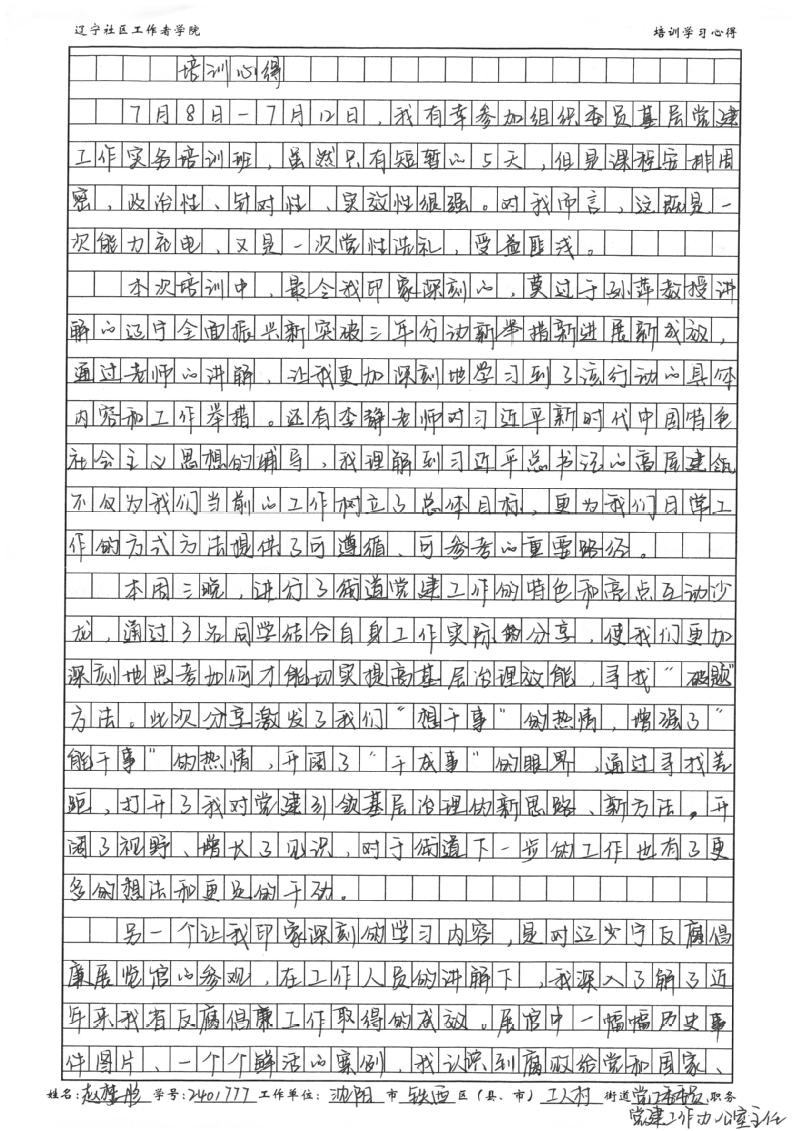 辽宁社区工作者学院 培训学习心得
培训心得
7月8日-7月12日，我有幸参加组织委员基层党建
工作实务培训班，虽然只有短暂的5天，但是课程安排周
密，政治性、针对性、实效性很强。对我而言，这既是一
次能力充电，又是一次党性洗礼，受益匪浅。
本次培训中，最令我印象深刻的，莫过于孙萍教授讲
解的辽宁全面振兴新突破三年行动新举措新进展新成效，
通过老师的讲解，让我更加深刻地学习到了该行动的具体
内容和工作举措。还有李静老师对习近平新时代中国特色
社会主义思想的辅导，我理解到习近平总书记的高屋建瓴
不仅为我们当前的工作树立了总体目标，更为我们日常工
作的方式方法提供了可遵循、可参考的重要路径。
本周三晚，进行了街道党建工作的特色和亮点互动沙
龙，通过3名同学结合自身工作实际的分享，使我们更加
深刻地思考如何才能切实提高基层治理效能，寻找“破题”
方法。此次分享激发了我们“想干事”的热情，增强了“
能干事”的热情，开阔了“干成事”的眼界，通过寻找差
距，打开了我对党建引领基层治理的新思路、新方法。开
阔了视野、增长了见识，对于街道下一步的工作也有了更
多的想法和更足的干劲。
另一个让我印象深刻的学习内容，是对辽宁反腐倡
廉展览馆的参观，在工作人员的讲解下，我深入了解了近
年来我省反腐倡廉工作取得的成效。展馆中一幅幅历史事
件图片、一个个鲜活的案例，我认识到腐败给党和国家、
姓名: 学号:2401777 工作单位: 沈阳 市 铁西 区（县、市） 工人村 街道 职务
党建工作办公室主任